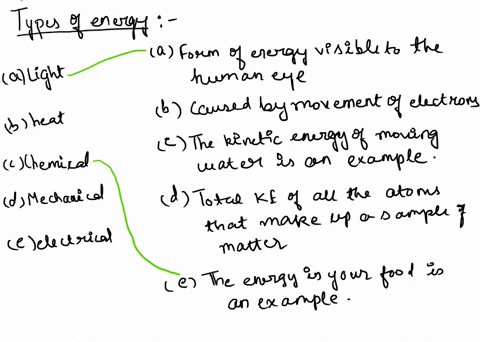 Types of energy :-
(a) Light
(b) heat
(c) Chemical
(d) Mechanical
(e) electrical
(a) Form of energy visible to the
human eye
(b) Caused by movement of electrons
(c) The kinetic energy of moving
water is an example.
(d) Total KE of all the atoms
that make up a sample of
matter
(e) The energy is your food is
an example.